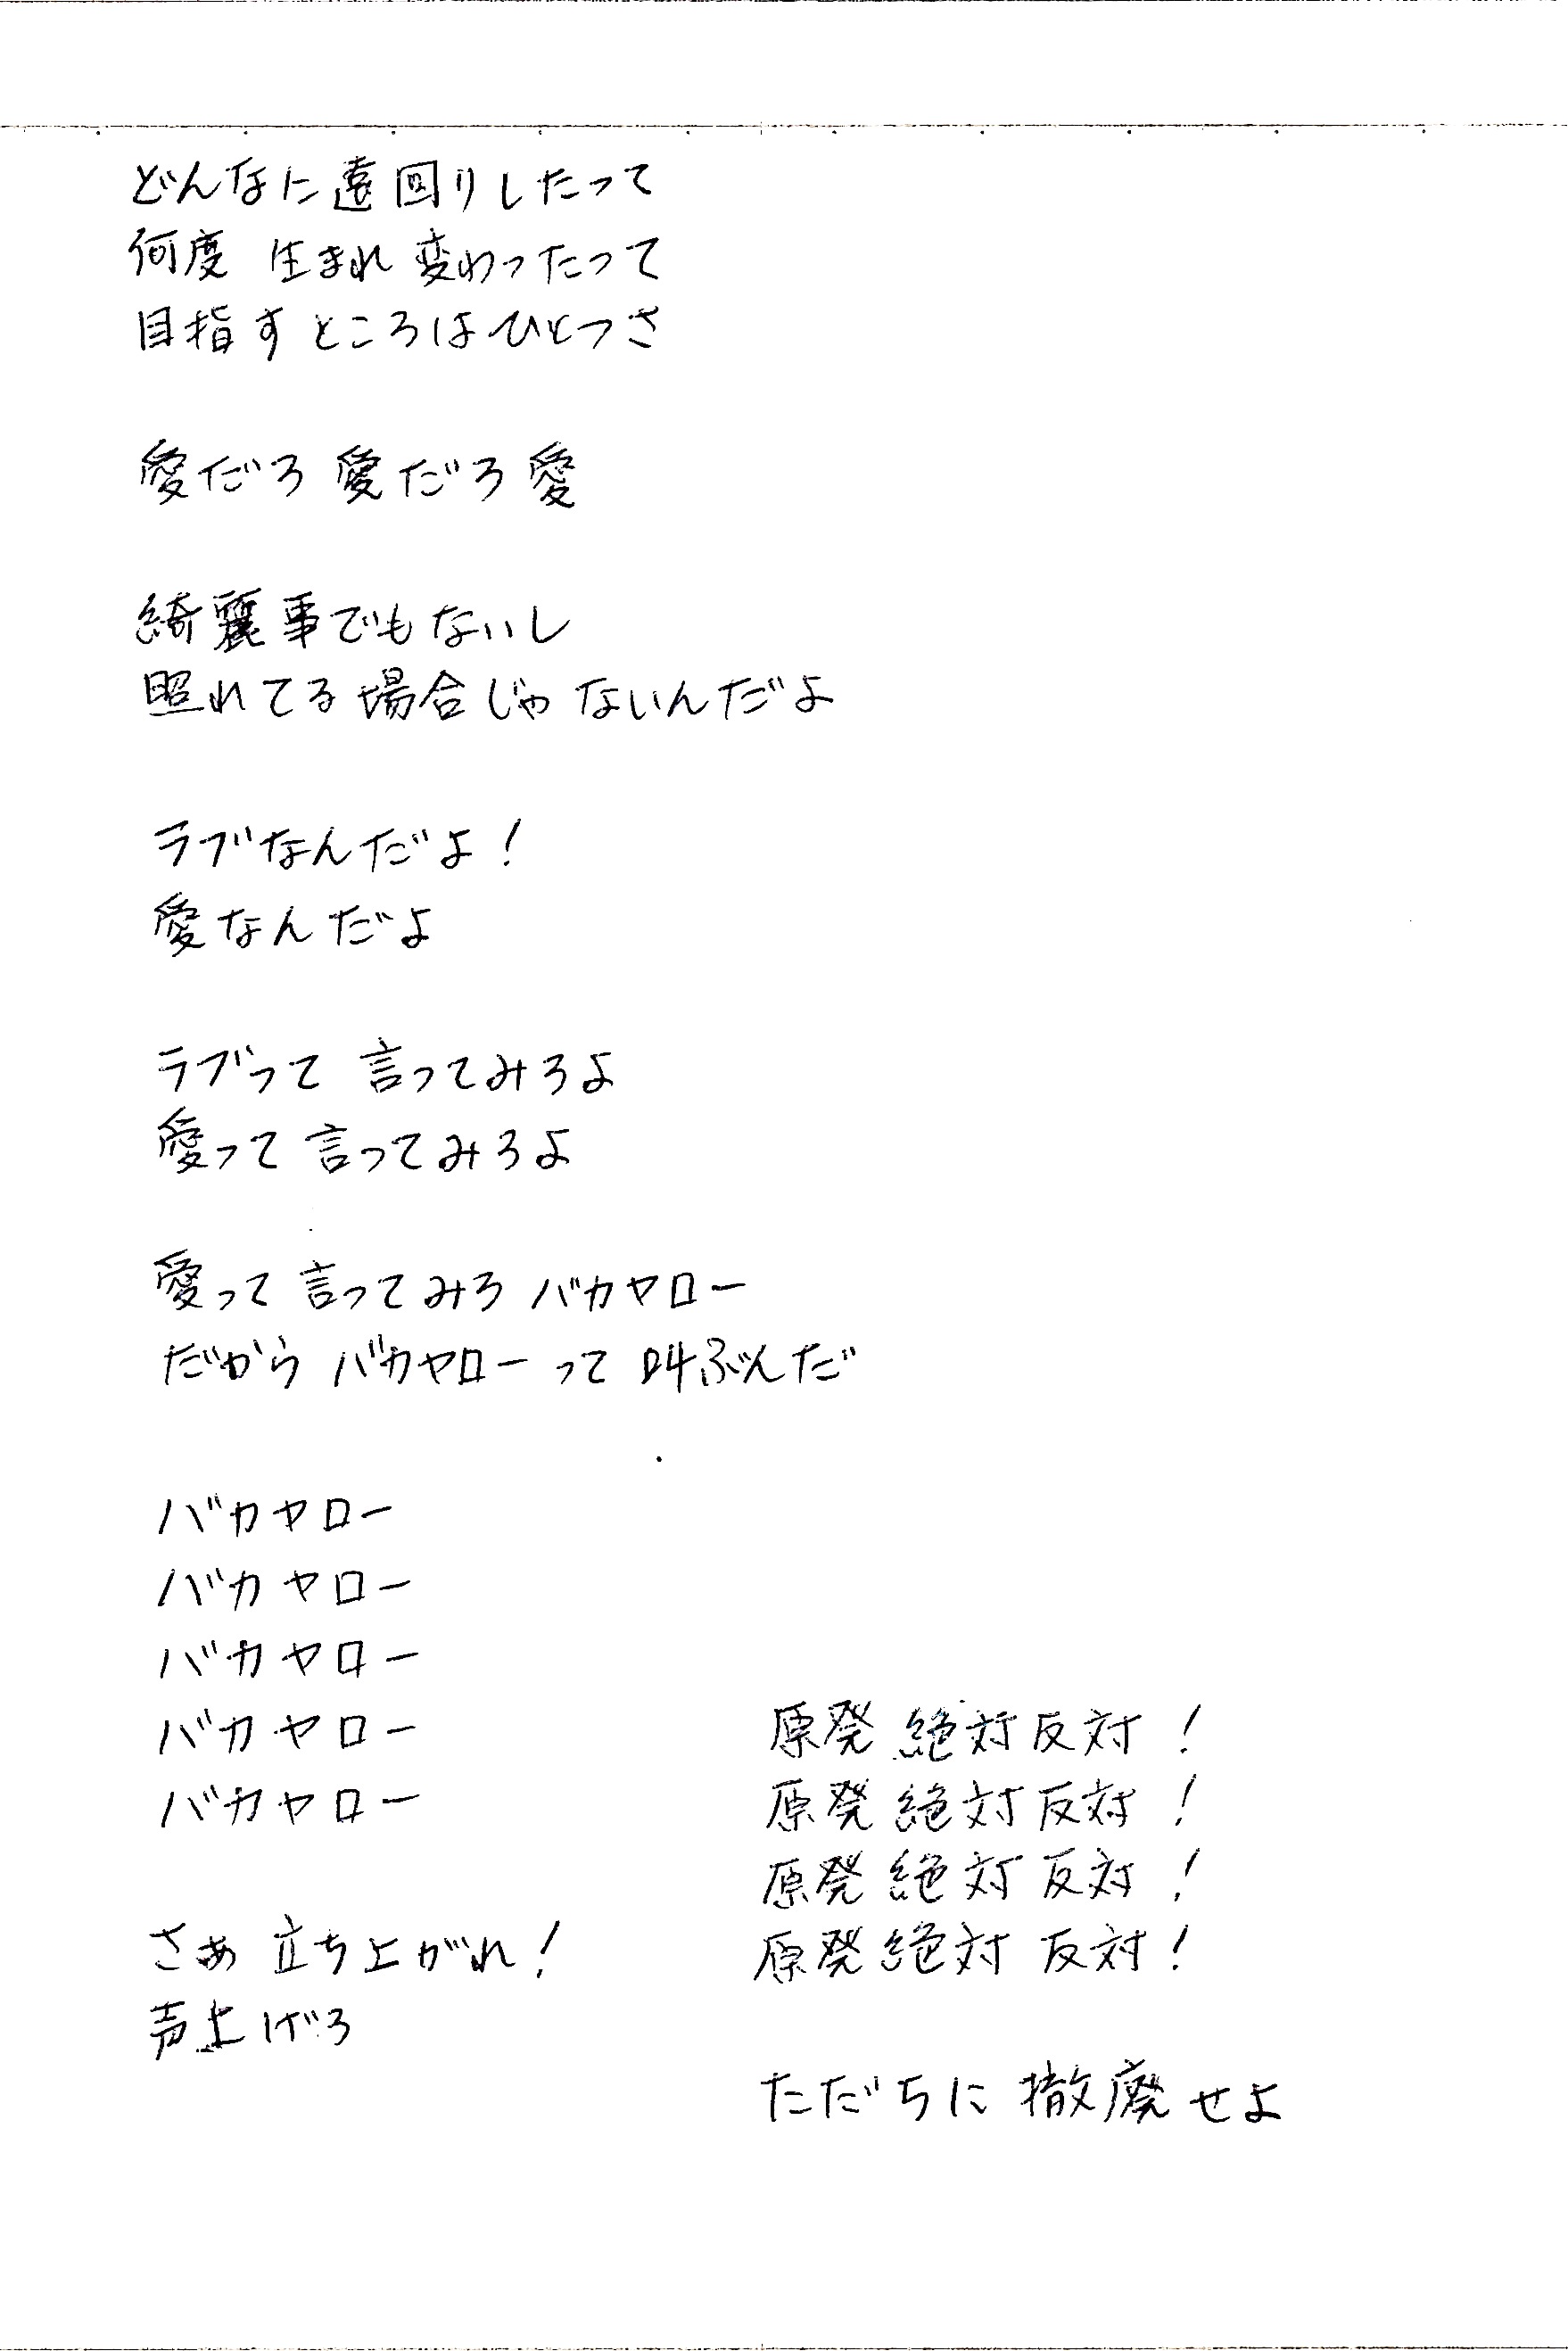 どんなに遠回りしたって
何度 生まれ変わったって
目指すところはひとつさ
愛だろ 愛だろ 愛
綺麗事でもないし
照れてる場合じゃないんだよ
ラブなんだよ!
愛なんだよ
ラブって 言ってみろよ
愛って 言ってみろよ
愛って 言ってみろ バカヤロー
だから バカヤローって 叫ぶんだ
バカヤロー
バカヤロー
バカヤロー
バカヤロー
バカヤロー
さあ 立ち上がれ!
声上げろ
原発 絶対反対!
原発 絶対反対!
原発 絶対反対!
原発 絶対反対!
ただちに 撤廃せよ